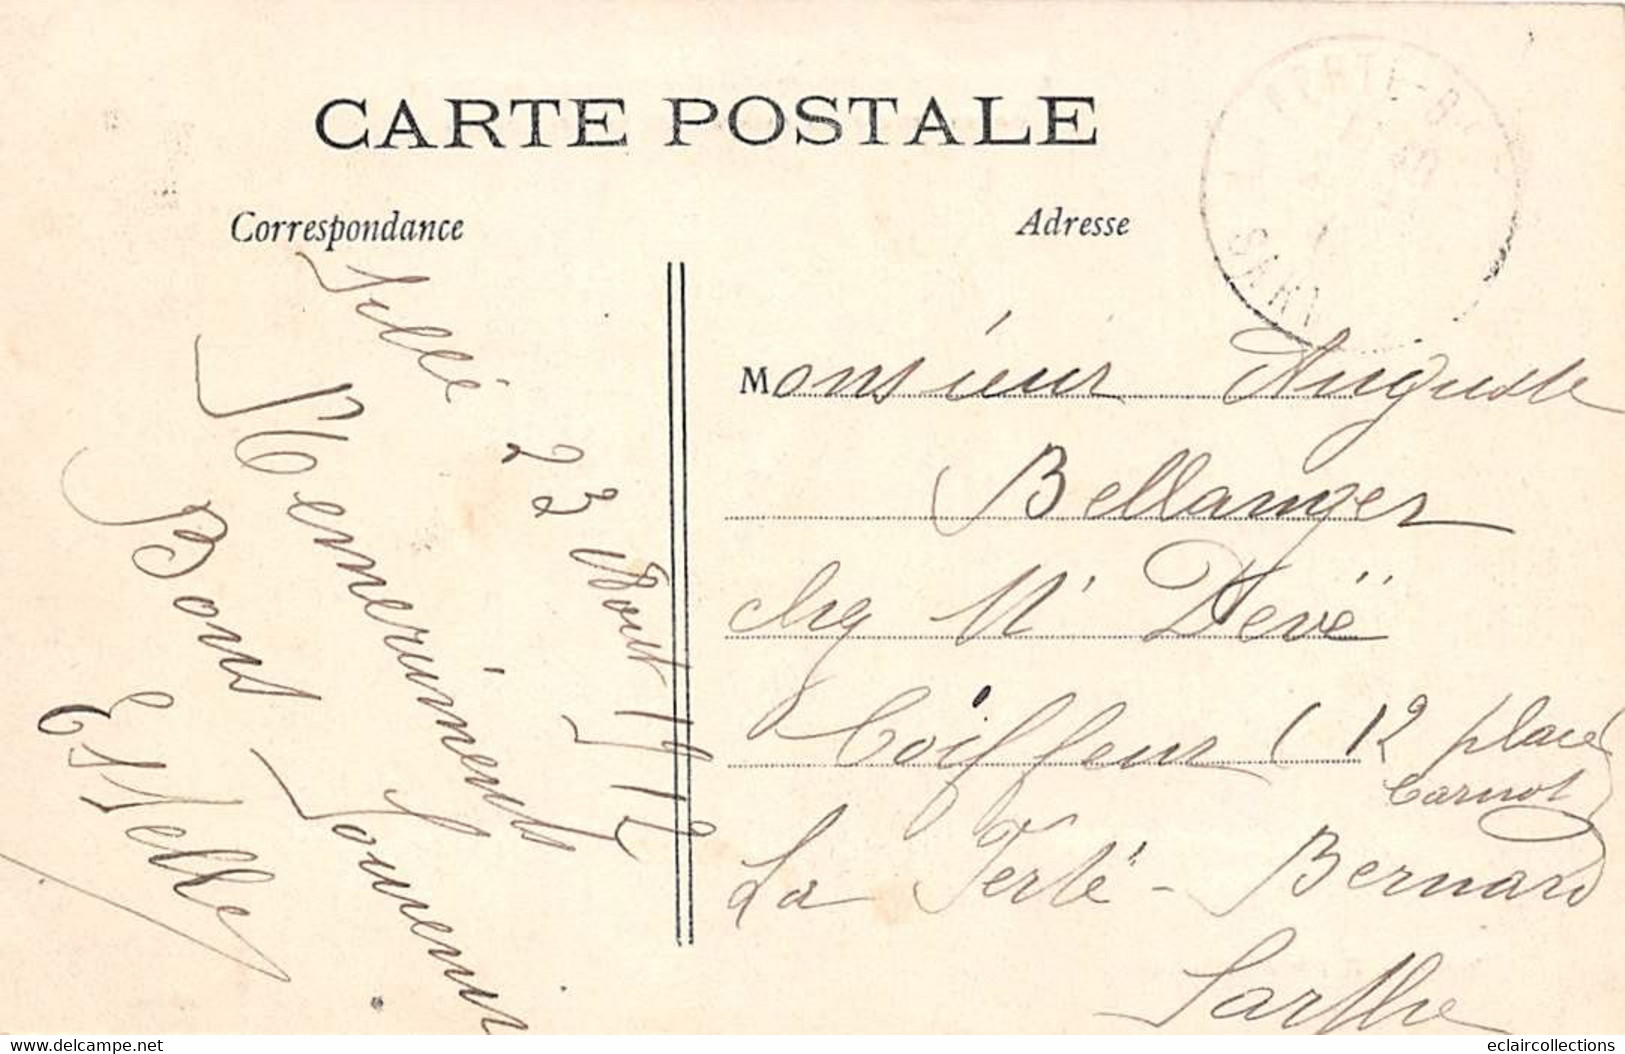 CARTE POSTALE
Correspondance
Adresse
Sillé
23 Aout 1912
Remerciements
Bons Souvenir
Estelle
Monsieur Auguste
Bellanger
chez Mr Devé
Coiffeur (12 place
Carnot)
La Ferté-Bernard
Sarthe
FERTÉ-B
SARTHE
https://www.delcampe.net
eclaircollections